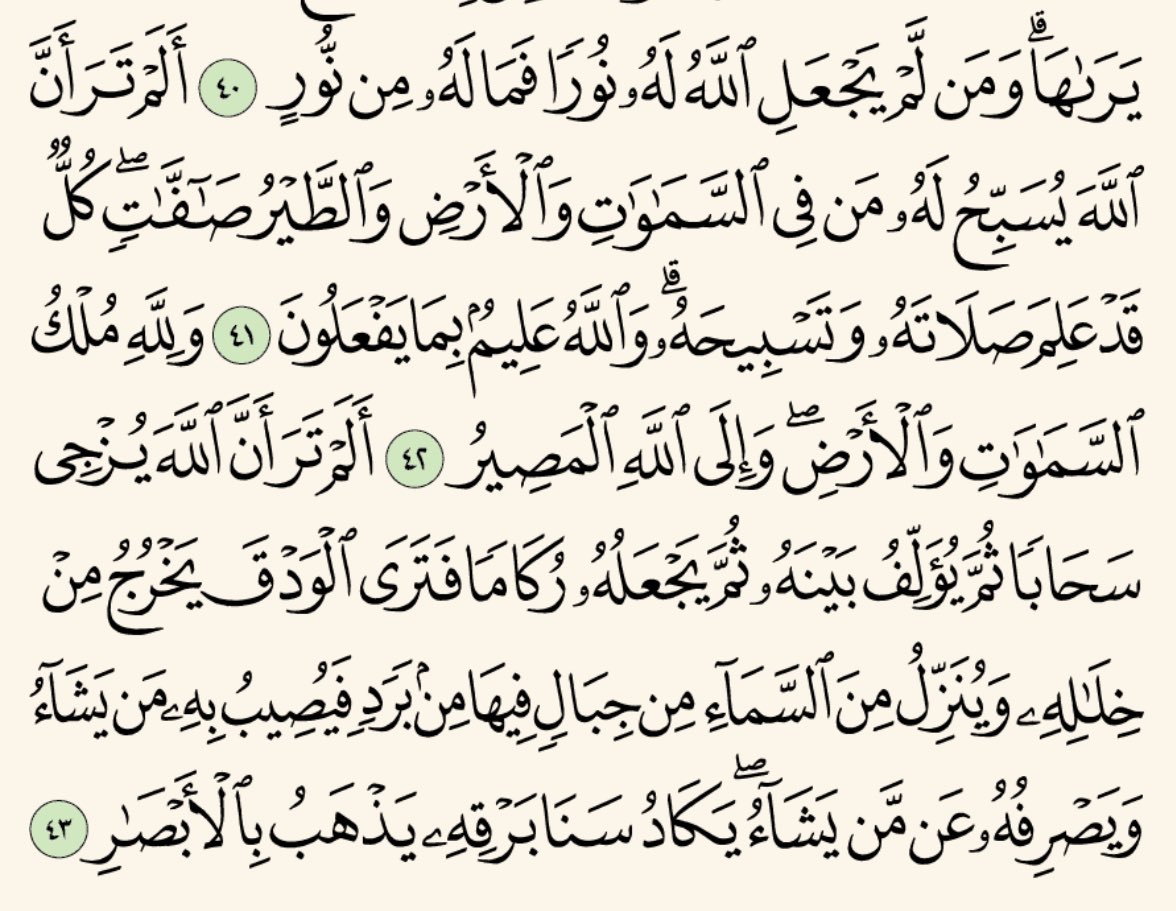 يَرَىٰهَاۗ وَمَن لَّمْ يَجْعَلِ ٱللَّهُ لَهُۥ نُورًا فَمَا لَهُۥ مِن نُّورٍ ٤٠ أَلَمْ تَرَ أَنَّ
ٱللَّهَ يُسَبِّحُ لَهُۥ مَن فِى ٱلسَّمَـٰوَٰتِ وَٱلْأَرْضِ وَٱلطَّيْرُ صَـٰٓفَّـٰتٍۖ كُلٌّ
قَدْ عَلِمَ صَلَاتَهُۥ وَتَسْبِيحَهُۥۗ وَٱللَّهُ عَلِيمٌۢ بِمَا يَفْعَلُونَ ٤١ وَلِلَّهِ مُلْكُ
ٱلسَّمَـٰوَٰتِ وَٱلْأَرْضِۖ وَإِلَى ٱللَّهِ ٱلْمَصِيرُ ٤٢ أَلَمْ تَرَ أَنَّ ٱللَّهَ يُزْجِى
سَحَابًا ثُمَّ يُؤَلِّفُ بَيْنَهُۥ ثُمَّ يَجْعَلُهُۥ رُكَامًا فَتَرَى ٱلْوَدْقَ يَخْرُجُ مِنْ
خِلَـٰلِهِۦ وَيُنَزِّلُ مِنَ ٱلسَّمَآءِ مِن جِبَالٍ فِيهَا مِنۢ بَرَدٍ فَيُصِيبُ بِهِۦ مَن يَشَآءُ
وَيَصْرِفُهُۥ عَن مَّن يَشَآءُۖ يَكَادُ سَنَا بَرْقِهِۦ يَذْهَبُ بِٱلْأَبْصَـٰرِ ٤٣